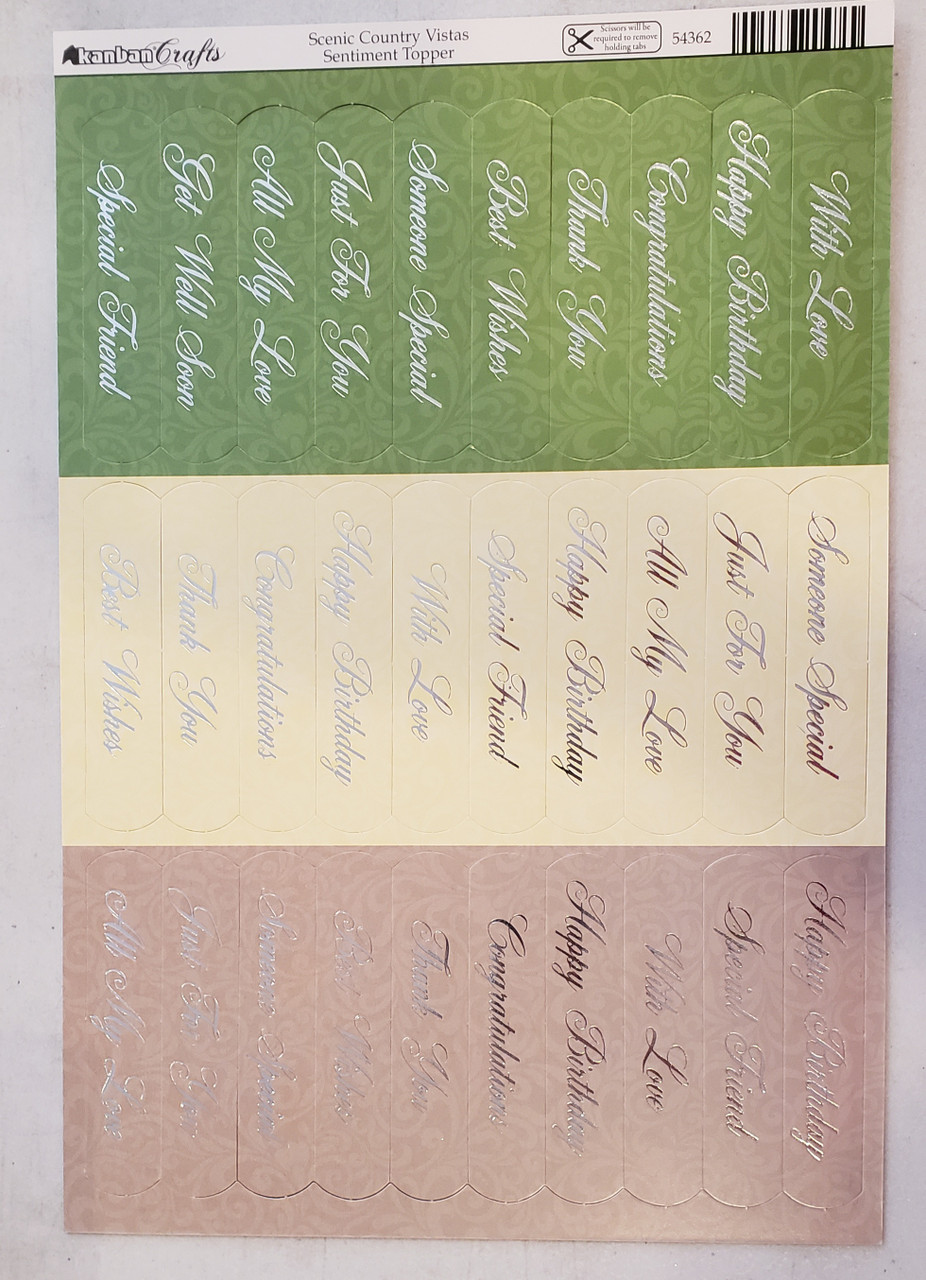 kanban Crafts
Scenic Country Vistas
Sentiment Topper
Scissors will be
required to remove
holding tabs
54362
With Love
Happy Birthday
Congratulations
Thank You
Best Wishes
Someone Special
Just For You
All My Love
Get Well Soon
Special Friend
Someone Special
Just For You
All My Love
Happy Birthday
Special Friend
With Love
Happy Birthday
Congratulations
Thank You
Best Wishes
Happy Birthday
Special Friend
With Love
Happy Birthday
Congratulations
Thank You
Best Wishes
Someone Special
Just For You
All My Love